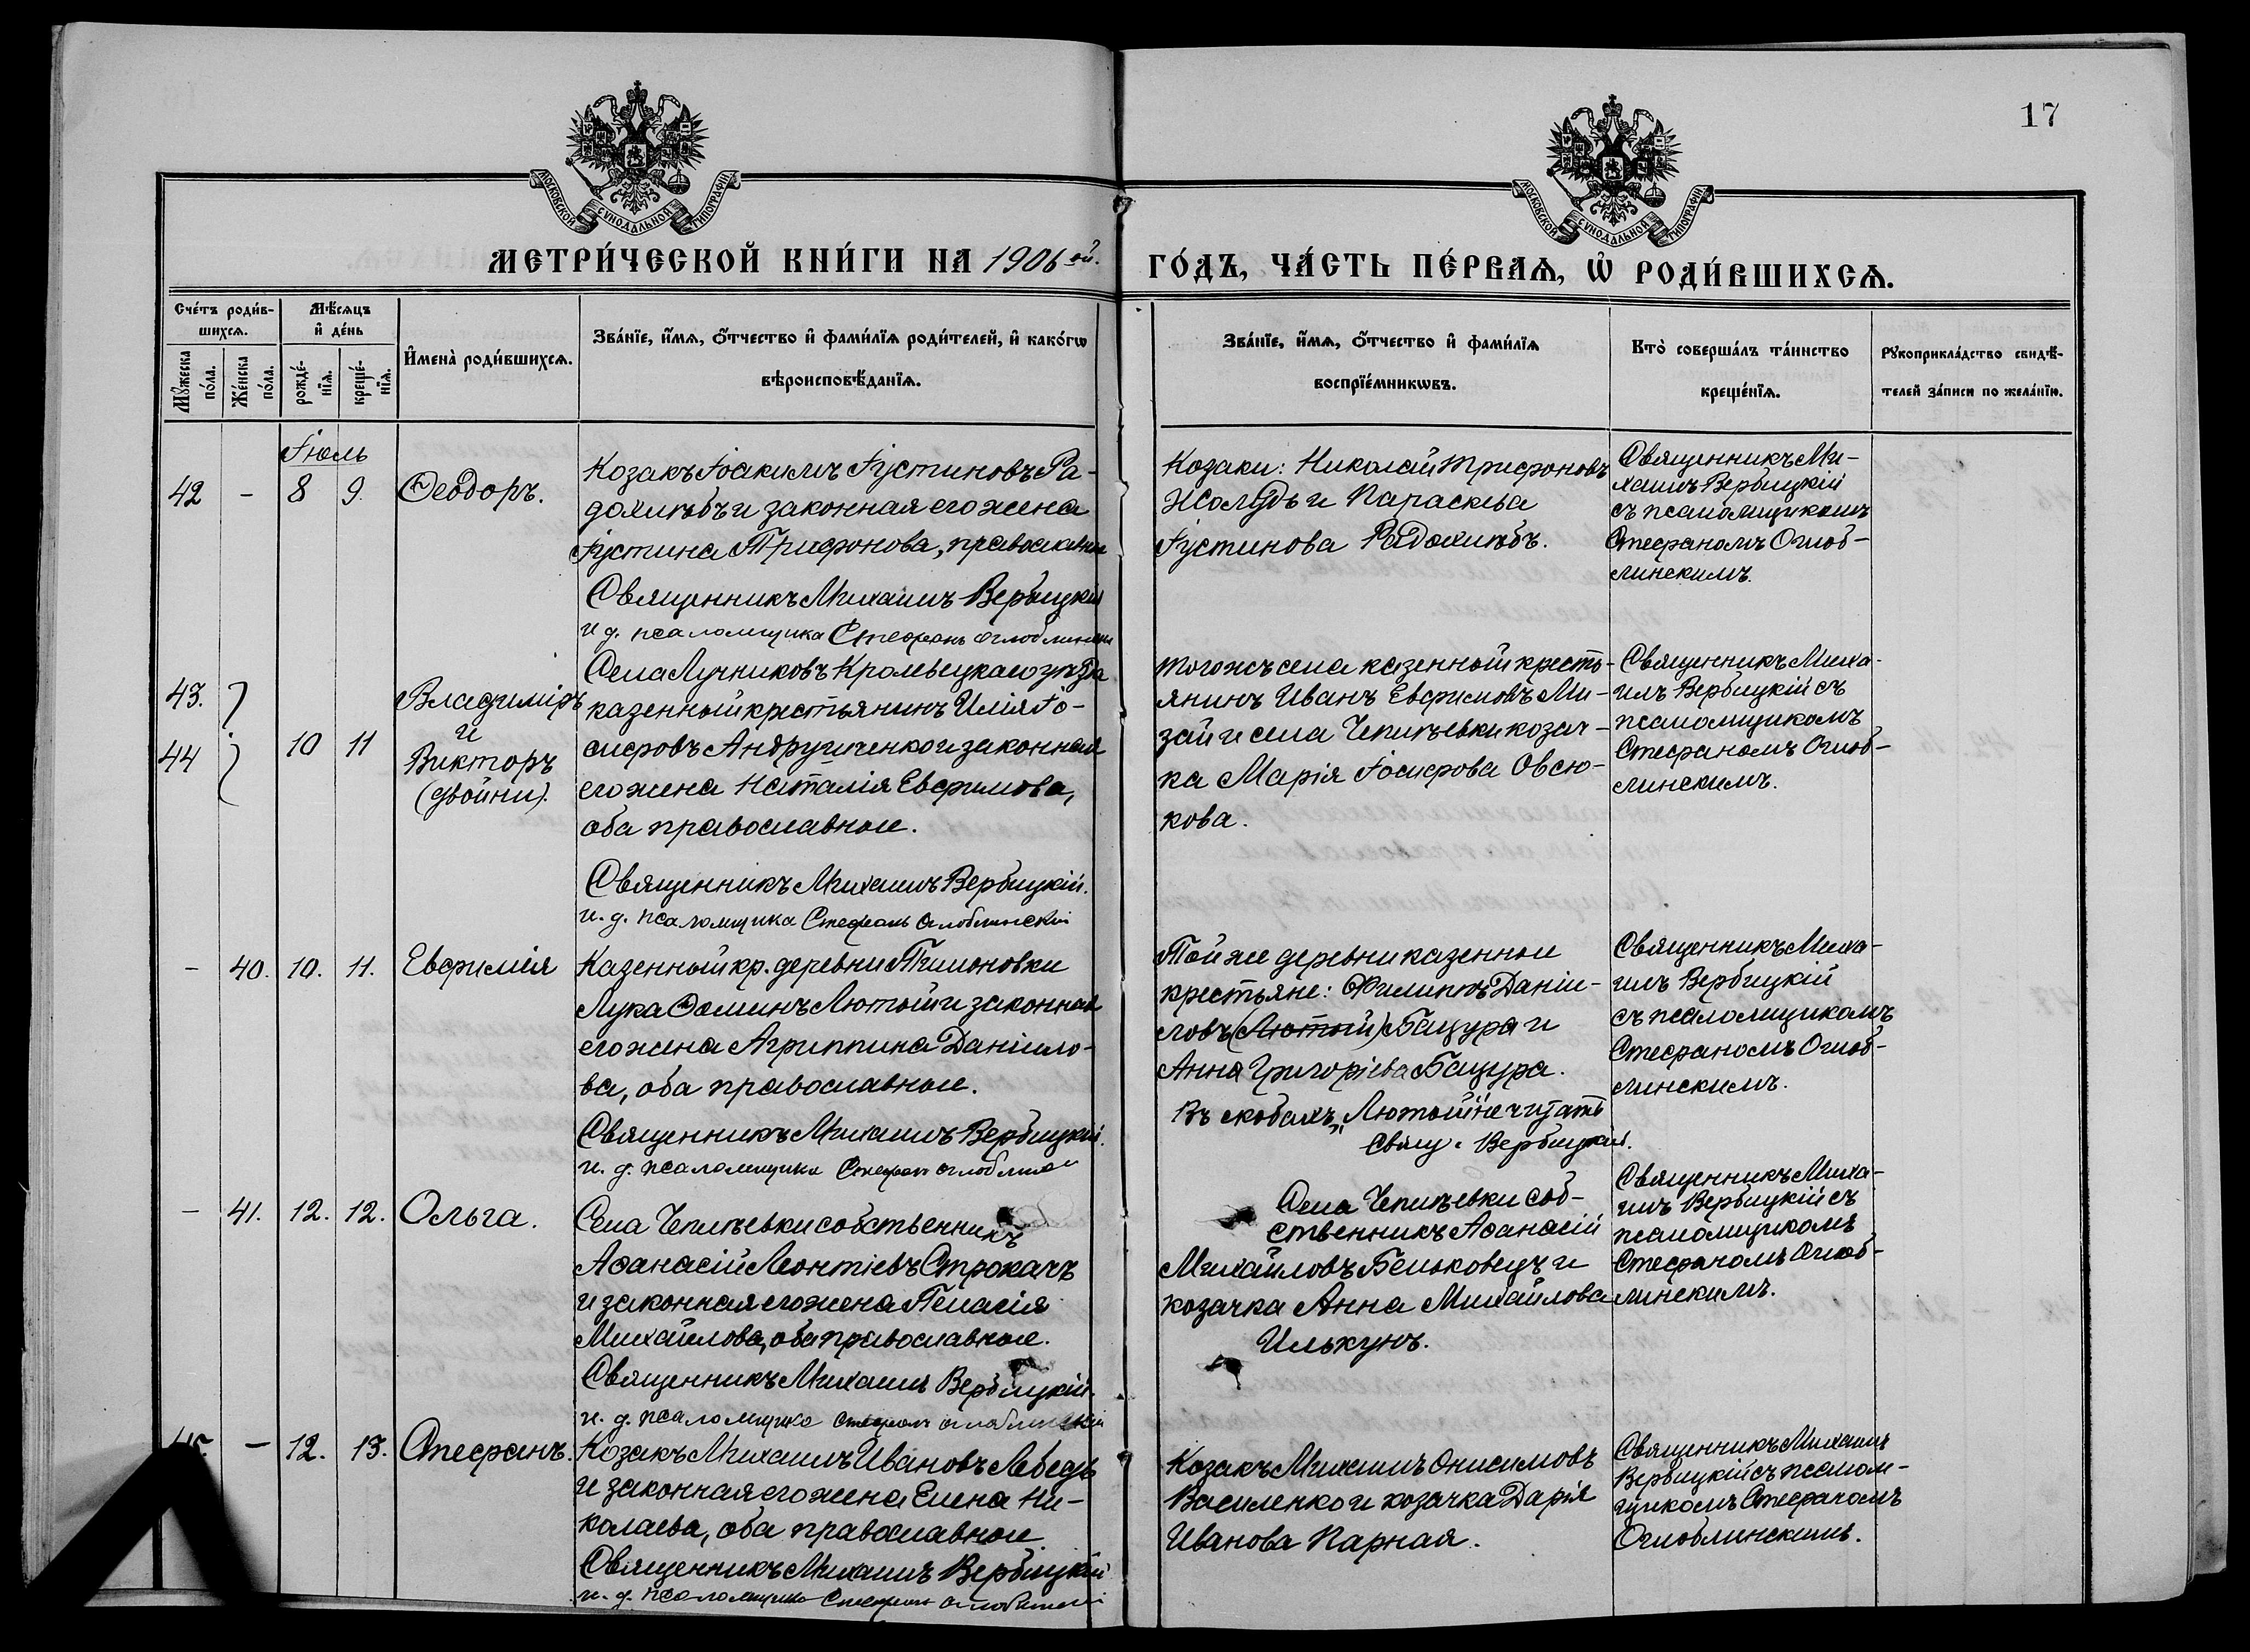 17
МОСКОВСКОЙ СѴНОДАЛЬНОЙ ТИПОГРАФІИ
МОСКОВСКОЙ СѴНОДАЛЬНОЙ ТИПОГРАФІИ
МЕТРИ́ЧЕСКОЙ КНИ́ГИ НА 1906 ой.
ГО́ДЪ, ЧА́СТЬ ПЕ́РВАѦ, Ѡ҆ РОДИ́ВШИХСѦ.
Сче́тъ роди́в-
шихсѧ.
Мꙋ́жеска
по́ла.
Же́нска
по́ла.
Мѣ́сѧцъ
и҆ де́нь
рожде́-
нїѧ.
креще́-
нїѧ.
И҆мена̀ роди́вшихсѧ.
Зва́нїе, и҆́мѧ, ѻ҆́тчество и҆ фами́лїѧ роди́телей, и҆ како́гѡ
вѣроисповѣ́данїѧ.
Зва́нїе, и҆́мѧ, ѻ҆́тчество и҆ фами́лїѧ
воспрїе́мникѡвъ.
Кто̀ соверша́лъ та́инство
креще́нїѧ.
Рꙋкоприкла́дство свидѣ́-
телей за́писи по жела́нїю.
Іюль
42 - 8 9. Ѳеодоръ.
Козакъ Іоакимъ Іустиновъ Ра-
дохлѣбъ и законная его жена
Іустина Трифонова, православные
Священникъ Михаилъ Вербицкій
и д. псаломщика Стефанъ Оглоблинскій
Козаки: Николай Трифоновъ
Жолудь и Параскева
Іустинова Радохлѣбъ.
Священникъ Ми-
хаилъ Вербицкій
съ псаломщикомъ
Стефаномъ Оглоб-
линскимъ.
43.
44
10 11
Владиміръ
и
Викторъ
(двойни).
Села Лучниковъ Кролевецкаго уѣзда
казенный крестьянинъ Илія Іо-
сифовъ Андрущенко и законная
его жена Наталія Евфимова,
оба православные.
Священникъ Михаилъ Вербицкій.
и. д. псаломщика Стефанъ Оглоблинскій
Тогожъ села казенный кресть-
янинъ Иванъ Евфимовъ Ми-
зай и села Чеплѣевки козач-
ка Марія Іосифова Овсю-
кова.
Священникъ Миха-
илъ Вербицкій съ
псаломщикомъ
Стефаномъ Оглоб-
линскимъ.
- 40. 10. 11. Евфимія
Казенный кр. деревни Тимоновки
Лука Ѳоминъ Лютый и законная
его жена Агриппина Даніило-
ва, оба православные.
Священникъ Михаилъ Вербицкій.
и. д. псаломщика Стефанъ Оглоблинскій
Той же деревни казенные
крестьяне: Филиппъ Даніи-
ловъ (Лютый) Бацура и
Анна Григоріева Бацура.
Въ скобахъ „Лютый" не читать
Свящ. Вербицкій.
Священникъ Миха-
илъ Вербицкій
съ псаломщикомъ
Стефаномъ Оглоб-
линскимъ.
- 41. 12. 12. Ольга.
Села Чеплѣевки собственникъ
Аѳанасій Леонтіевъ Строкачъ
и законная его жена Пелагія
Михайлова, оба православные.
Священникъ Михаилъ Вербицкій.
и. д. псаломщика Стефанъ Оглоблинскій
Села Чеплѣевки соб-
ственникъ Аѳанасій
Михайловъ Бельковецъ и
козачка Анна Михайлова
Илькунъ.
Священникъ Миха-
илъ Вербицкій съ
псаломщикомъ
Стефаномъ Оглоб-
линскимъ.
- 12. 13. Стефанъ.
Козакъ Михаилъ Ивановъ Лебедь
и законная его жена Елена Ни-
колаева, оба православные.
Священникъ Михаилъ Вербицкій
и. д. псаломщика Стефанъ Оглоблинскій
Козакъ Михаилъ Онисимовъ
Василенко и козачка Дарія
Иванова Парная.
Священникъ Михаилъ
Вербицкій съ псалом-
щикомъ Стефаномъ
Оглоблинскимъ.